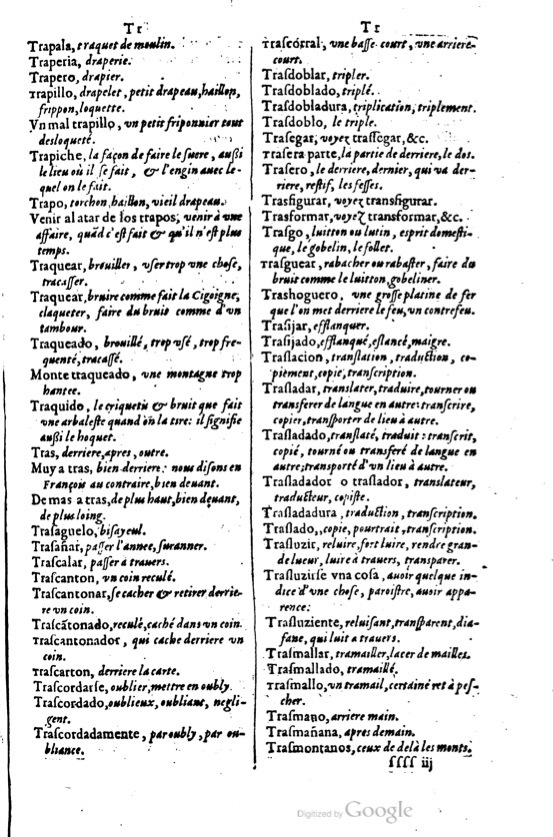 Tr
Trapala, traquet de moulin.
Traperia, draperie.
Trapero, drapier.
Trapillo, drapelet, petit drapeau, haillon,
frippon, loquette.
Vn mal trapillo, vn petit friponnier tout
desloqueté.
Trapiche, la façon de faire le sucre, außi
le lieu où il se fait, & l'engin auec le-
quel on le fait.
Trapo, torchon, haillon, vieil drapeau.
Venir al atar de los trapos, venir à vne
affaire, quãd c'est fait & qu'il n'est plus
temps.
Traquear, brouiller, vser trop vne chose,
tracasser.
Traquear, bruire comme fait la Cigoigne,
claqueter, faire du bruit comme d'vn
tambour.
Traqueado, brouillé, trop vsé, trop fre-
quenté, tracassé.
Monte traqueado, vne montagne trop
hantee.
Traquido, le criquetis & bruit que fait
vne arbaleste quand on la tire: il signifie
außi le hoquet.
Tras, derriere, apres, outre.
Muy a tras, bien derriere: nous disons en
François au contraire, bien deuant.
De mas a tras, de plus haut, bien deuant,
de plus loing.
Traſaguelo, bisayeul.
Traſañar, passer l'annee, suranner.
Traſcalar, passer à trauers.
Traſcanton, vn coin reculé.
Traſcantonar, se cacher & retirer derrie-
re vn coin.
Traſcãtonado, reculé, caché dans vn coin.
Traſcantonador, qui cache derriere vn
coin.
Traſcarton, derriere la carte.
Traſcordarſe, oublier, mettre en oubly.
Traſcordado, oublieux, oubliant, negli-
gent.
Traſcordadamente, par oubly, par ou-
bliance.
Tr
Traſcorral, vne basse court, vne arriere-
court.
Traſdoblar, tripler.
Traſdoblado, triplé.
Traſdobladura, triplication, triplement.
Traſdoblo, le triple.
Traſegar, voyez traſſegar, &c.
Traſera parte, la partie de derriere, le dos.
Traſero, le derriere, dernier, qui va der-
riere, restif, les fesses.
Traſfigurar, voyez transfigurar.
Traſformar, voyez transformar, &c.
Traſgo, luitton ou lutin, esprit domesti-
que, le gobelin, le follet.
Traſguear, rabacher ou rabaster, faire du
bruit comme le luitton, gobeliner.
Traſhoguero, vne grosse platine de fer
que l'on met derriere le feu, vn contrefeu.
Traſijar, efflanquer.
Traſijado, efflanqué, eslancé, maigre.
Traſlacion, translation, traduction, co-
piement, copie, transcription.
Traſladar, translater, traduire, tourner ou
transferer de langue en autre: transcrire,
copier, transporter de lieu à autre.
Traſladado, translaté, traduit: transcrit,
copié, tourné ou transferé de langue en
autre; transporté d'vn lieu à autre.
Traſladador o traſlador, translateur,
traducteur, copiste.
Traſladadura, traduction, transcription.
Traſlado, copie, pourtrait, transcription.
Traſluzir, reluire, fort luire, rendre gran-
de lueur, luire à trauers, transparer.
Traſluzirſe vna coſa, auoir quelque in-
dice d'vne chose, paroistre, auoir appa-
rence:
Traſluziente, reluisant, transparent, dia-
fane, qui luit a trauers.
Traſmallar, tramailler, lacer de mailles.
Traſmallado, tramaillé.
Traſmallo, vn tramail, certaine ret à pes-
cher.
Traſmano, arriere main.
Traſmañana, apres demain.
Traſmontanos, ceux de delà les monts.
ſſſſ iij
Digitized by Google